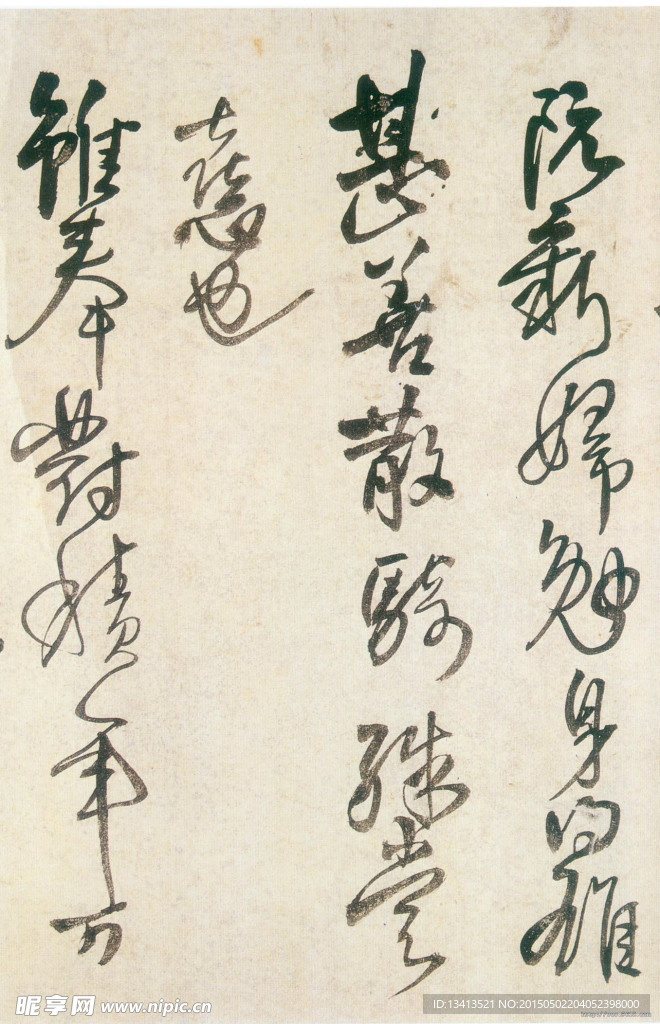 阮新婦勉身得雄
甚善散騎殊當
憙也
雖奉對積年可
昵享网 www.nipic.cn
ID:13413521 NO:20150502204052398000